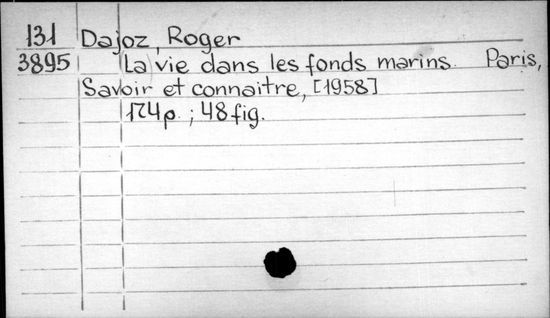 131 Dajoz, Roger
3895 La vie dans les fonds marins. Paris,
Savoir et connaitre, [1958]
174p. ; 48 fig.